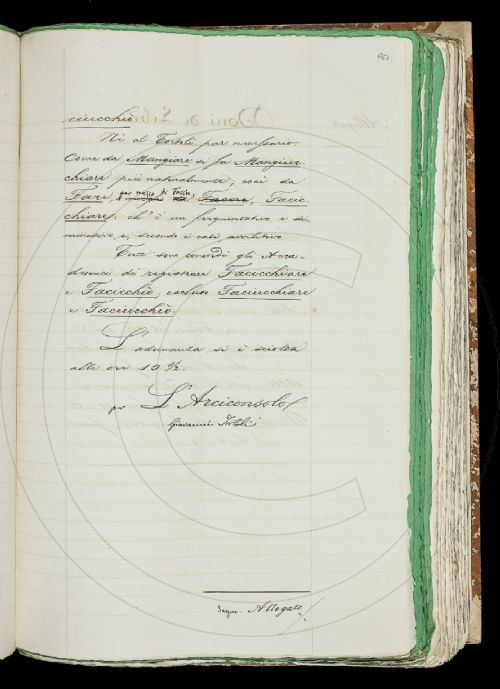 ciucchio.
Nè al Tortoli par necessario.
Come da Mangiare si fa Mangiuc-
chiare più naturalmente, così da
Fare, per mezzo di Faccio, Facic-
chiare, ch'è un frequentativo e di-
minutivo e, secondo i casi, avvilitivo.
Tutti sono concordi gli Acca-
demici di registrare Facicchiare
e Facicchio, escluso Faciucchiare
e Faciucchio.
L'adunanza si è sciolta
alle ore 10 ½.
L'Arciconsolo
Giovanni Tortoli
Segue Allegato